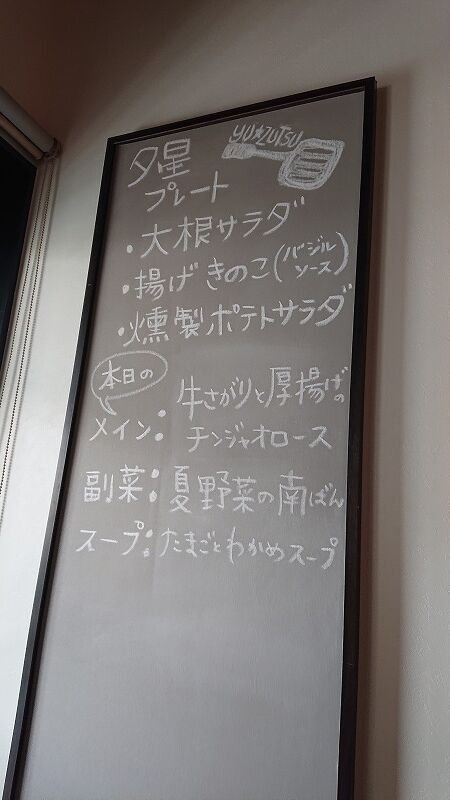 夕星
YU★ZUTSU
プレート
・大根サラダ
・揚げきのこ(バジルソース)
・燻製ポテトサラダ
本日の
メイン:牛さがりと厚揚げの
チンジャオロース
副菜:夏野菜の南ばん
スープ:たまごとわかめスープ